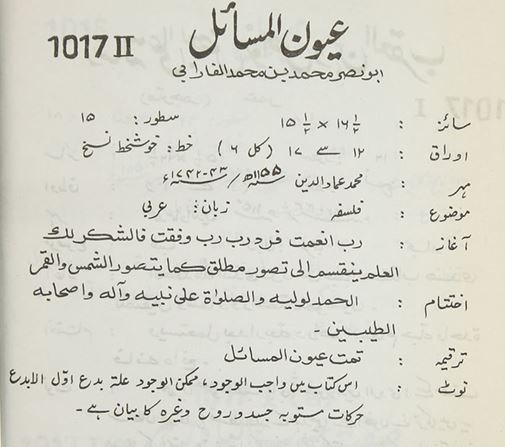 عیون المسائل
1017 II
ابونصر محمد بن محمد الفارابی
سائز : ۱۶ ۱/۲ × ۱۵ ۱/۲ سطور : ۱۵
اوراق : ۱۲ سے ۱۷ (کل ۶) خط : خوشخط نسخ
مہر : محمد عماد الدین ۱۱۵۵ھ / ۴۳-۱۷۴۲ء
موضوع : فلسفہ زبان : عربی
آغاز : رب انعمت فزد رب رب وفقت فالشکر لك
العلم ینقسم الی تصور مطلق کما یتصور الشمس والقمر
اختتام : الحمد لولیه والصلواة علی نبیه وآله واصحابه
الطیبین -
ترقیمہ : تمت عیون المسائل
نوٹ : اس کتاب میں واجب الوجود، ممکن الوجود علة بدع اوّل الابدع
حرکات ستویہ جسد و روح وغیرہ کا بیان ہے -